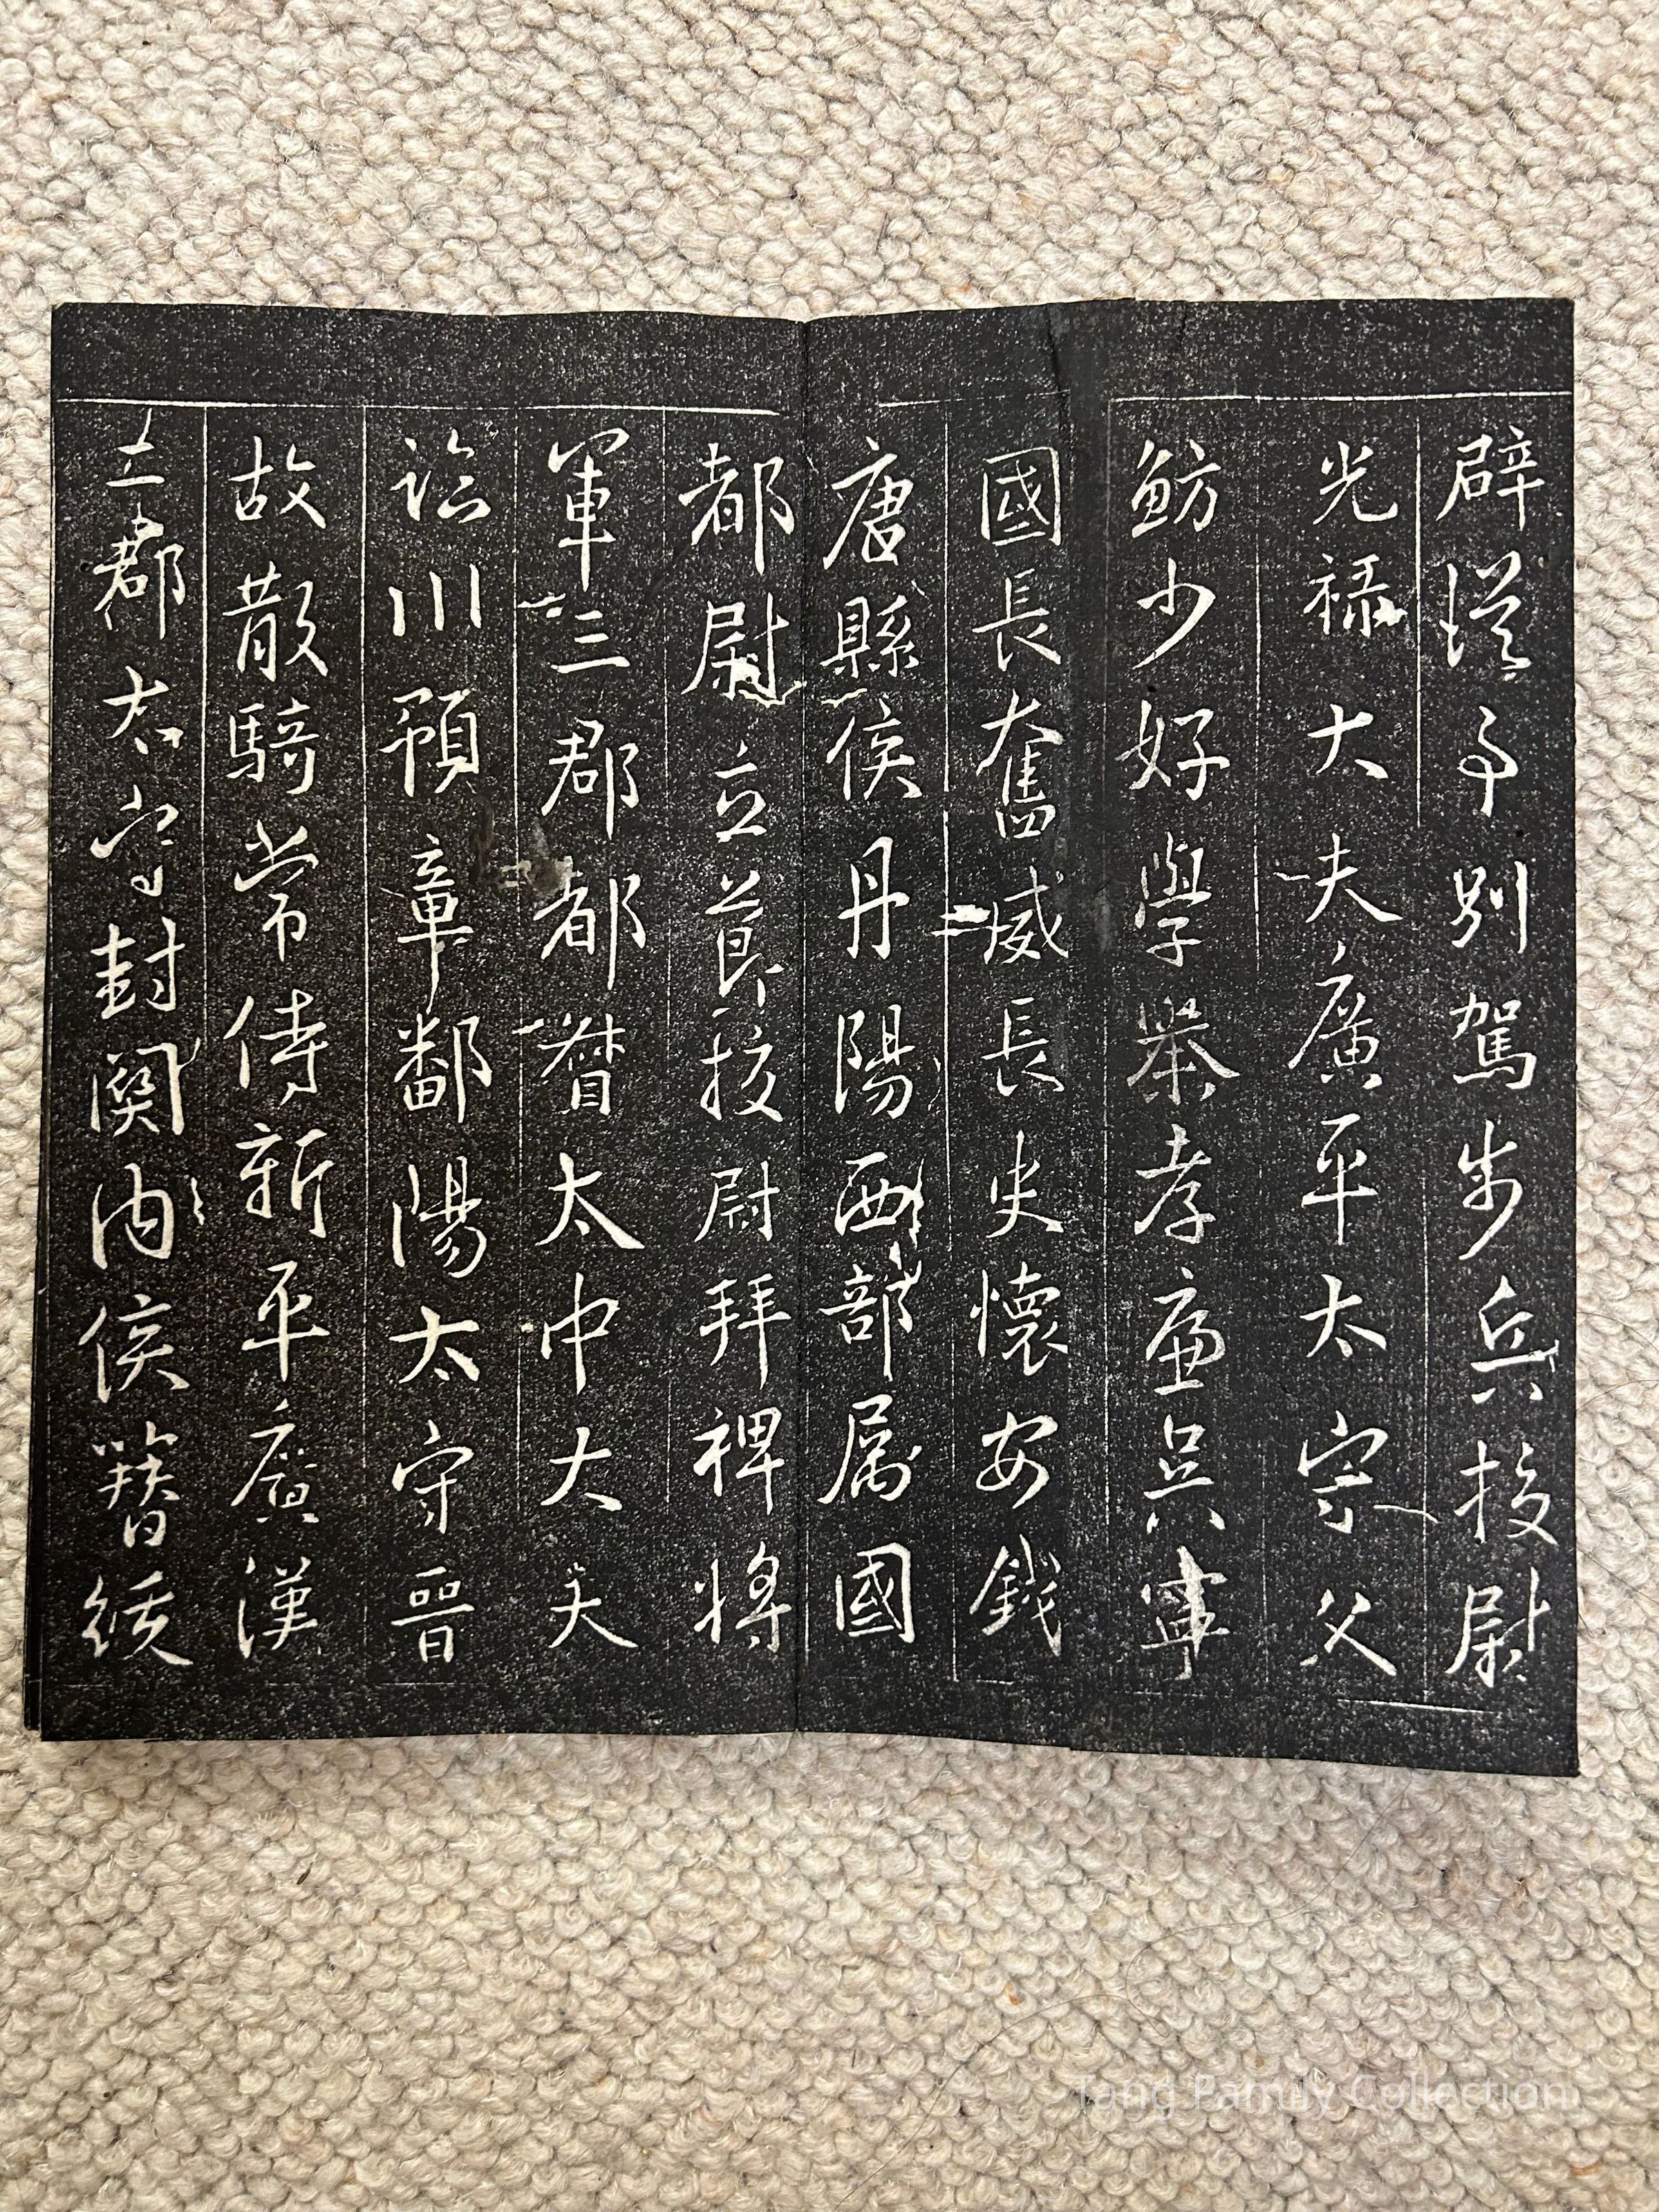 辟從事別駕步兵校尉
光祿大夫廣平太宗父
魴少好學舉孝廉吳寧
國長奮威長史懷安錢
唐縣侯丹陽西部属國
都尉立節校尉拜裨將
軍三郡都督太中大夫
臨川預章鄱陽太守晉
故散騎常侍新平廣漢
郡太守封關內侯簪
Tang Pamily Collection